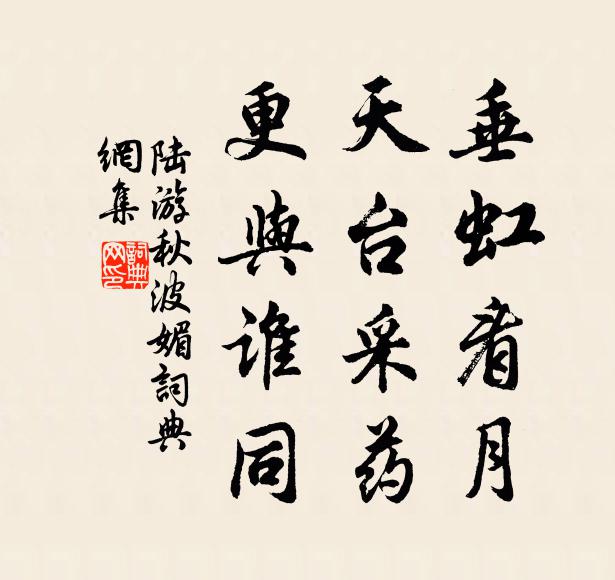 垂虹看月
天台采药
更與谁同
陆游秋波媚詞典
網集
詞典
网印